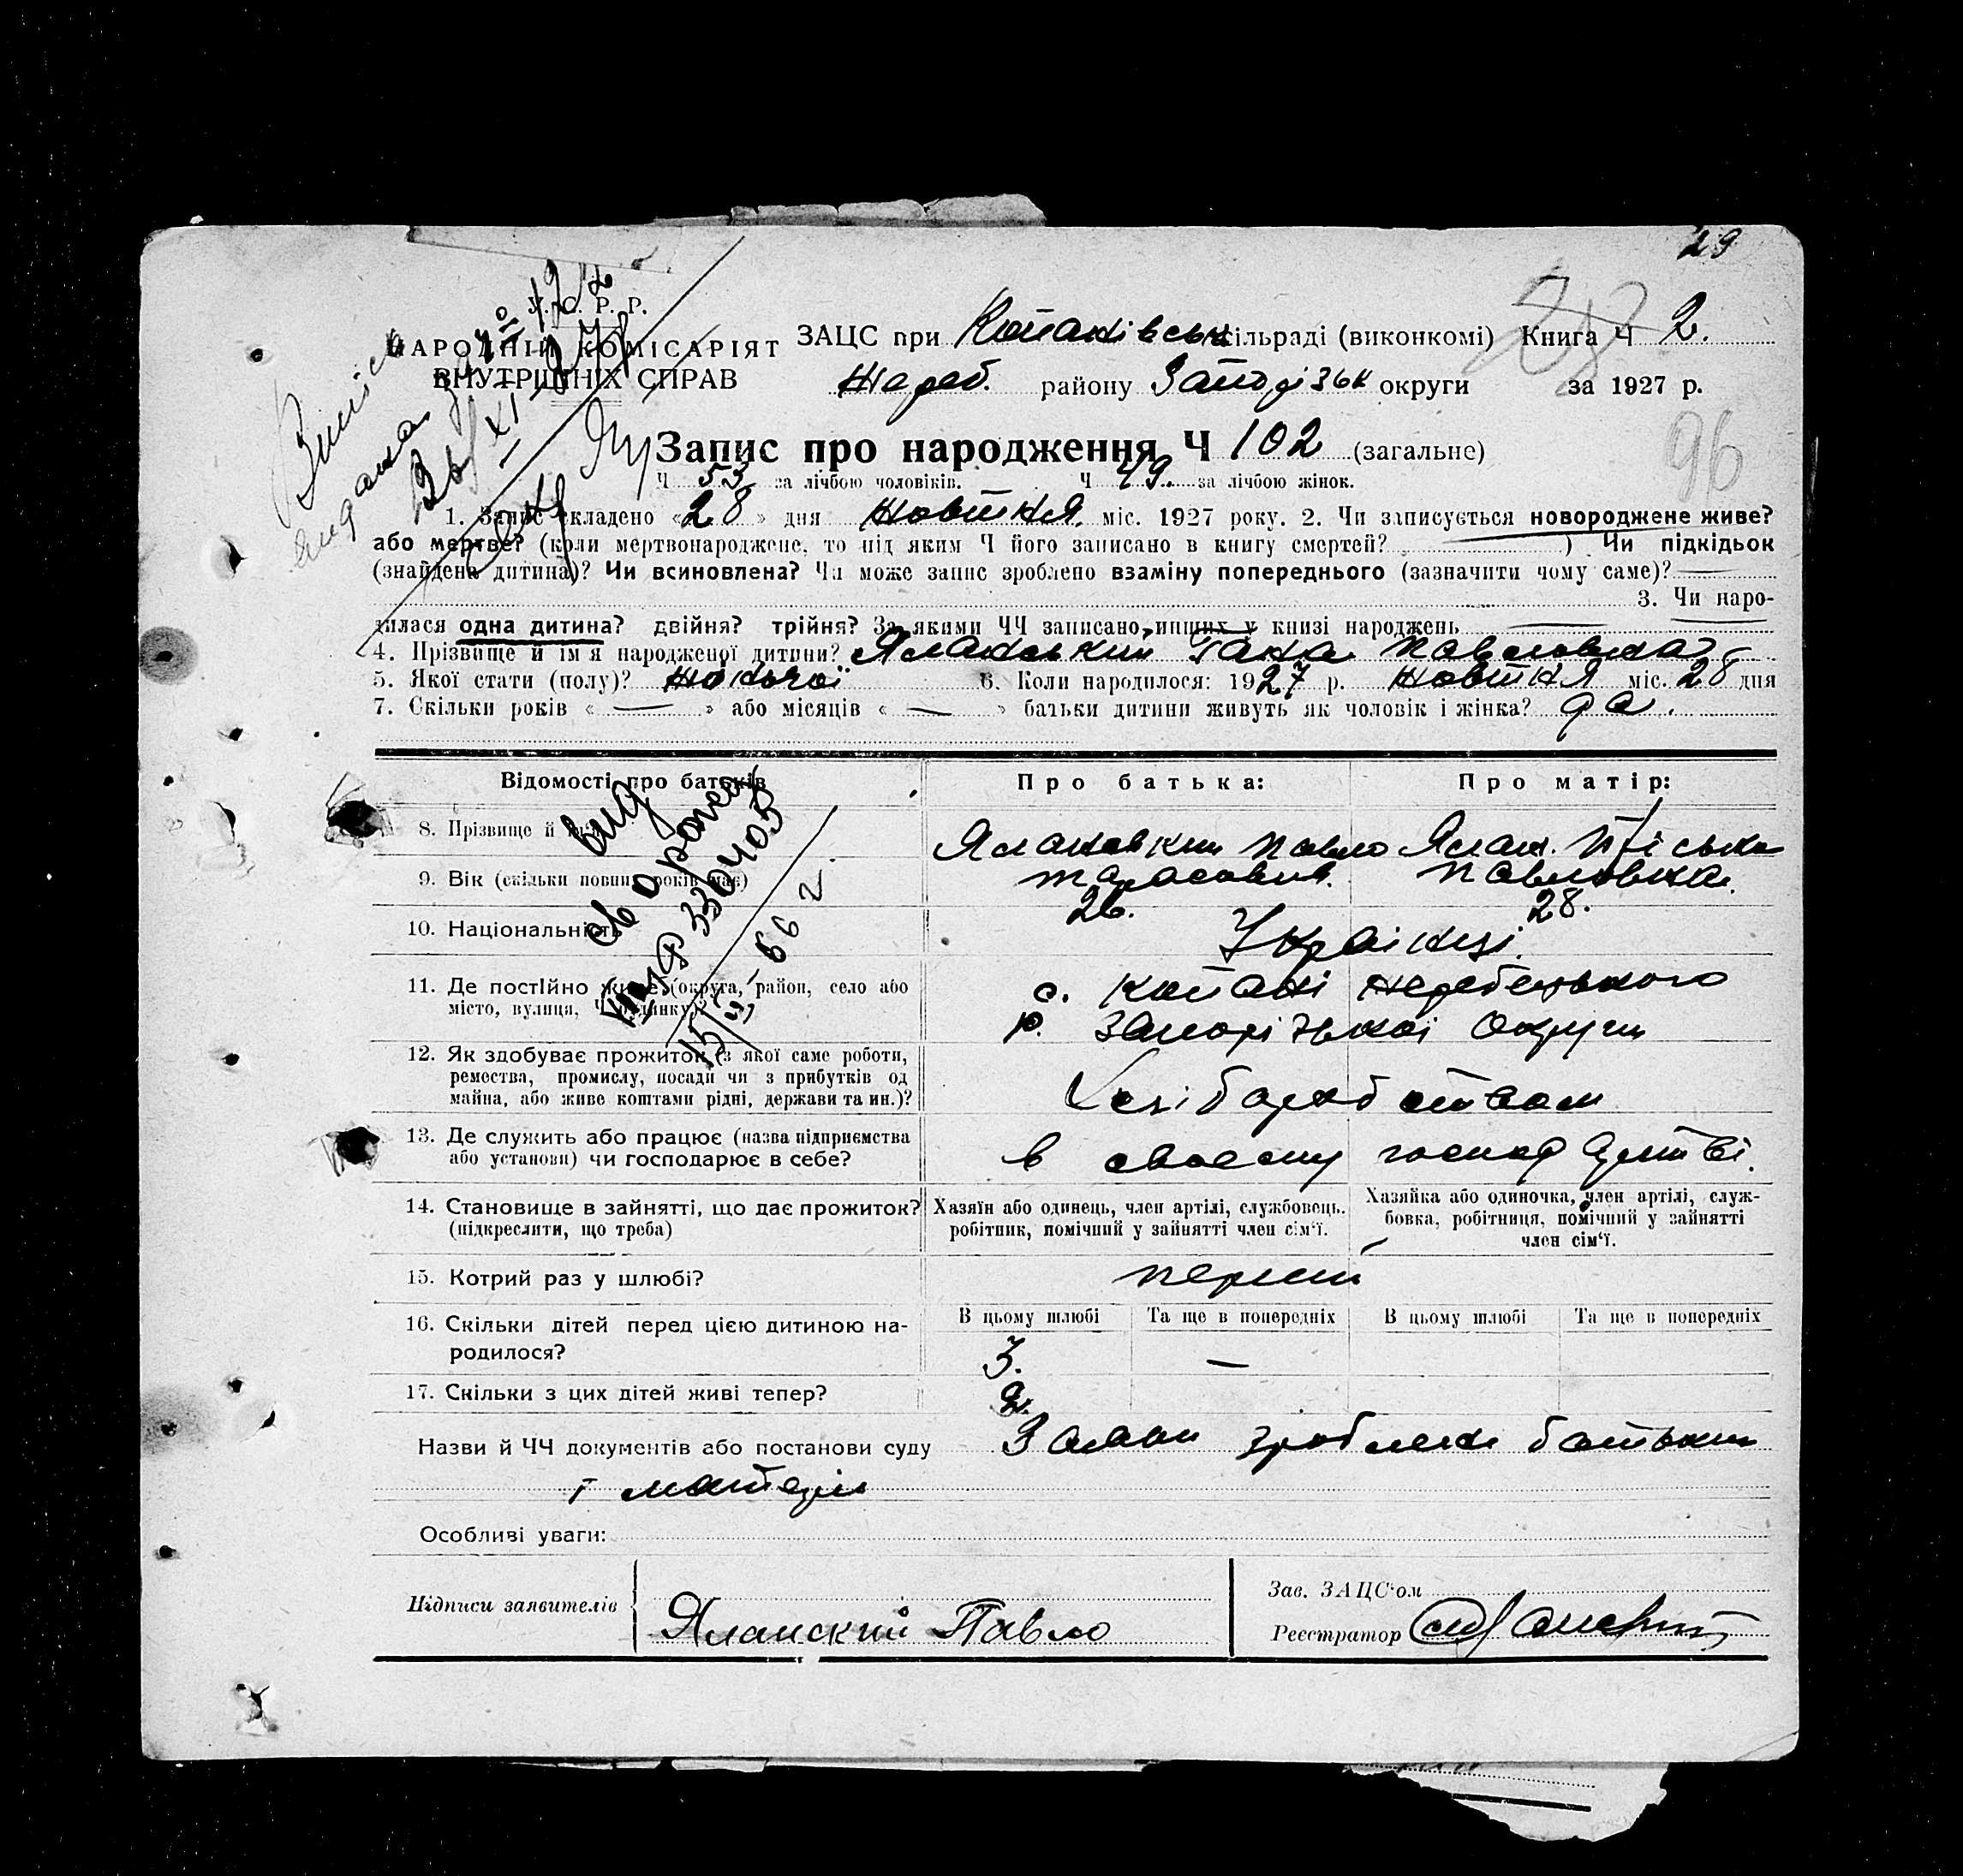 29
У. С. Р. Р.
НАРОДНІЙ КОМІСАРІЯТ
ВНУТРІШНІХ СПРАВ
ЗАЦС при Копанівськ сільраді (виконкомі) Книга Ч 2.
Жереб. району Запорізьк округи за 1927 р.
96
Запис про народження Ч 102 (загальне)
Ч 53 за лічбою чоловіків. Ч 49 за лічбою жінок.
1. Запис складено «28» дня Новтня міс. 1927 року. 2. Чи записується новороджене живе?
або мертве? (коли мертвонароджене, то під яким Ч його записано в книгу смертей? ) Чи підкідьок
(знайдена дитина)? Чи всиновлена? Чи може запис зроблено взаміну попереднього (зазначити чому саме)?
3. Чи наро-
дилася одна дитина? двійня? трійня? За якими ЧЧ записано инших у книзі народжень
4. Прізвище й ім'я народженої дитини? Яланський Гана Павловна
5. Якої стати (полу)? жіночої 6. Коли народилося: 1927 р. Новтня міс. 28 дня
7. Скільки років « — » або місяців « — » батьки дитини живуть як чоловік і жінка? да.
Відомості про батьків Про батька: Про матір:
8. Прізвище й ім'я Яланський Павло Ялан.
9. Вік (скільки повних років має) Тарасович. 26. Павловна. 28.
10. Національність Українці.
11. Де постійно живе (округа, район, село або с. Копані Жеребецького
місто, вулиця, Ч будинку) р. Запорізької Округи
12. Як здобуває прожиток (з якої саме роботи,
ремества, промислу, посади чи з прибутків од
майна, або живе коштами рідні, держави та ин.)? хліборобством
13. Де служить або працює (назва підприємства
або установи) чи господарює в себе? в своему господарстві.
14. Становище в зайнятті, що дає прожиток?
(підкреслити, що треба)
Хазяїн або одинець, член артілі, службовець.
робітник, помічний у зайнятті член сім'ї.
Хазяйка або одиночка, член артілі, служ-
бовка, робітниця, помічний у зайнятті
член сім'ї.
15. Котрий раз у шлюбі? перший
16. Скільки дітей перед цією дитиною на-
родилося?
В цьому шлюбі Та ще в попередніх В цьому шлюбі Та ще в попередніх
3. —
17. Скільки з цих дітей живі тепер? 2.
Назви й ЧЧ документів або постанови суду Заяви зроблени батьком
і матерію
Особливі уваги:
Підписи заявителів Яланский Павло
Зав. ЗАЦС'ом
Реєстратор